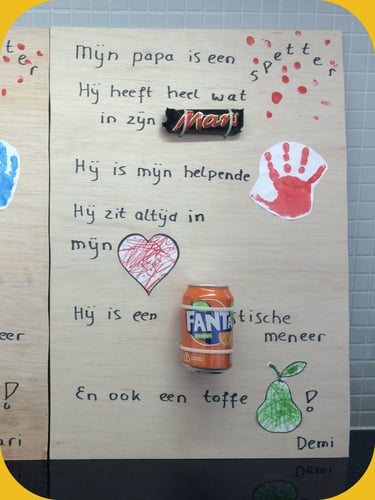 Mijn papa is een spetter
Hij heeft heel wat
in zijn Mars
Hij is mijn helpende
Hij zit altijd in
mijn
Hij is een FANTAstische
meneer
En ook een toffe !
Demi